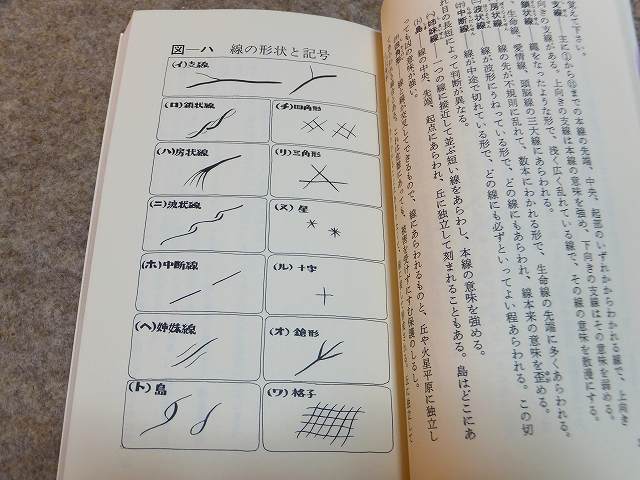 図―ハ 線の形状と記号
(イ)支線
(ロ)鎖状線
(ハ)房状線
(ニ)波状線
(ホ)中断線
(ヘ)姉妹線
(ト)島
(チ)四角形
(リ)三角形
(ヌ)星
(ル)十字
(オ)鎗形
(ワ)格子
覚えて下さい。
支線――主に①から⑪までの本線の先端、中央、起部のいずれかからわかれる線で、上向き
向きの支線がある。上向きの支線は本線の意味を強め、下向きの支線はその意味を弱める。
鎖状線――縄をなったような形で、浅く広く乱れている線で、その線の意味を散漫にする。
生命線、愛情線、頭脳線の三大線にあらわれる。
房状線――線の先が不規則に乱れて、数本にわかれる形で、生命線の先端に多くあらわれる。
波状線――線が波形にうねっている形で、どの線にもあらわれ、線本来の意味を歪める。
中断線――線が中途で切れている形で、どの線にも必ずといってよい程あらわれる。この切
れ目の長短によって判断が異なる。
姉妹線――一つの線に接近して並ぶ短い線をあらわし、本線の意味を強める。
島――線の中央、先端、起点にあらわれ、丘に独立して刻まれることもある。島はどこにあ
っても凶の意味が強い。
線と線が交叉してできるもので、線にあらわれるものと、丘や火星平原に独立し